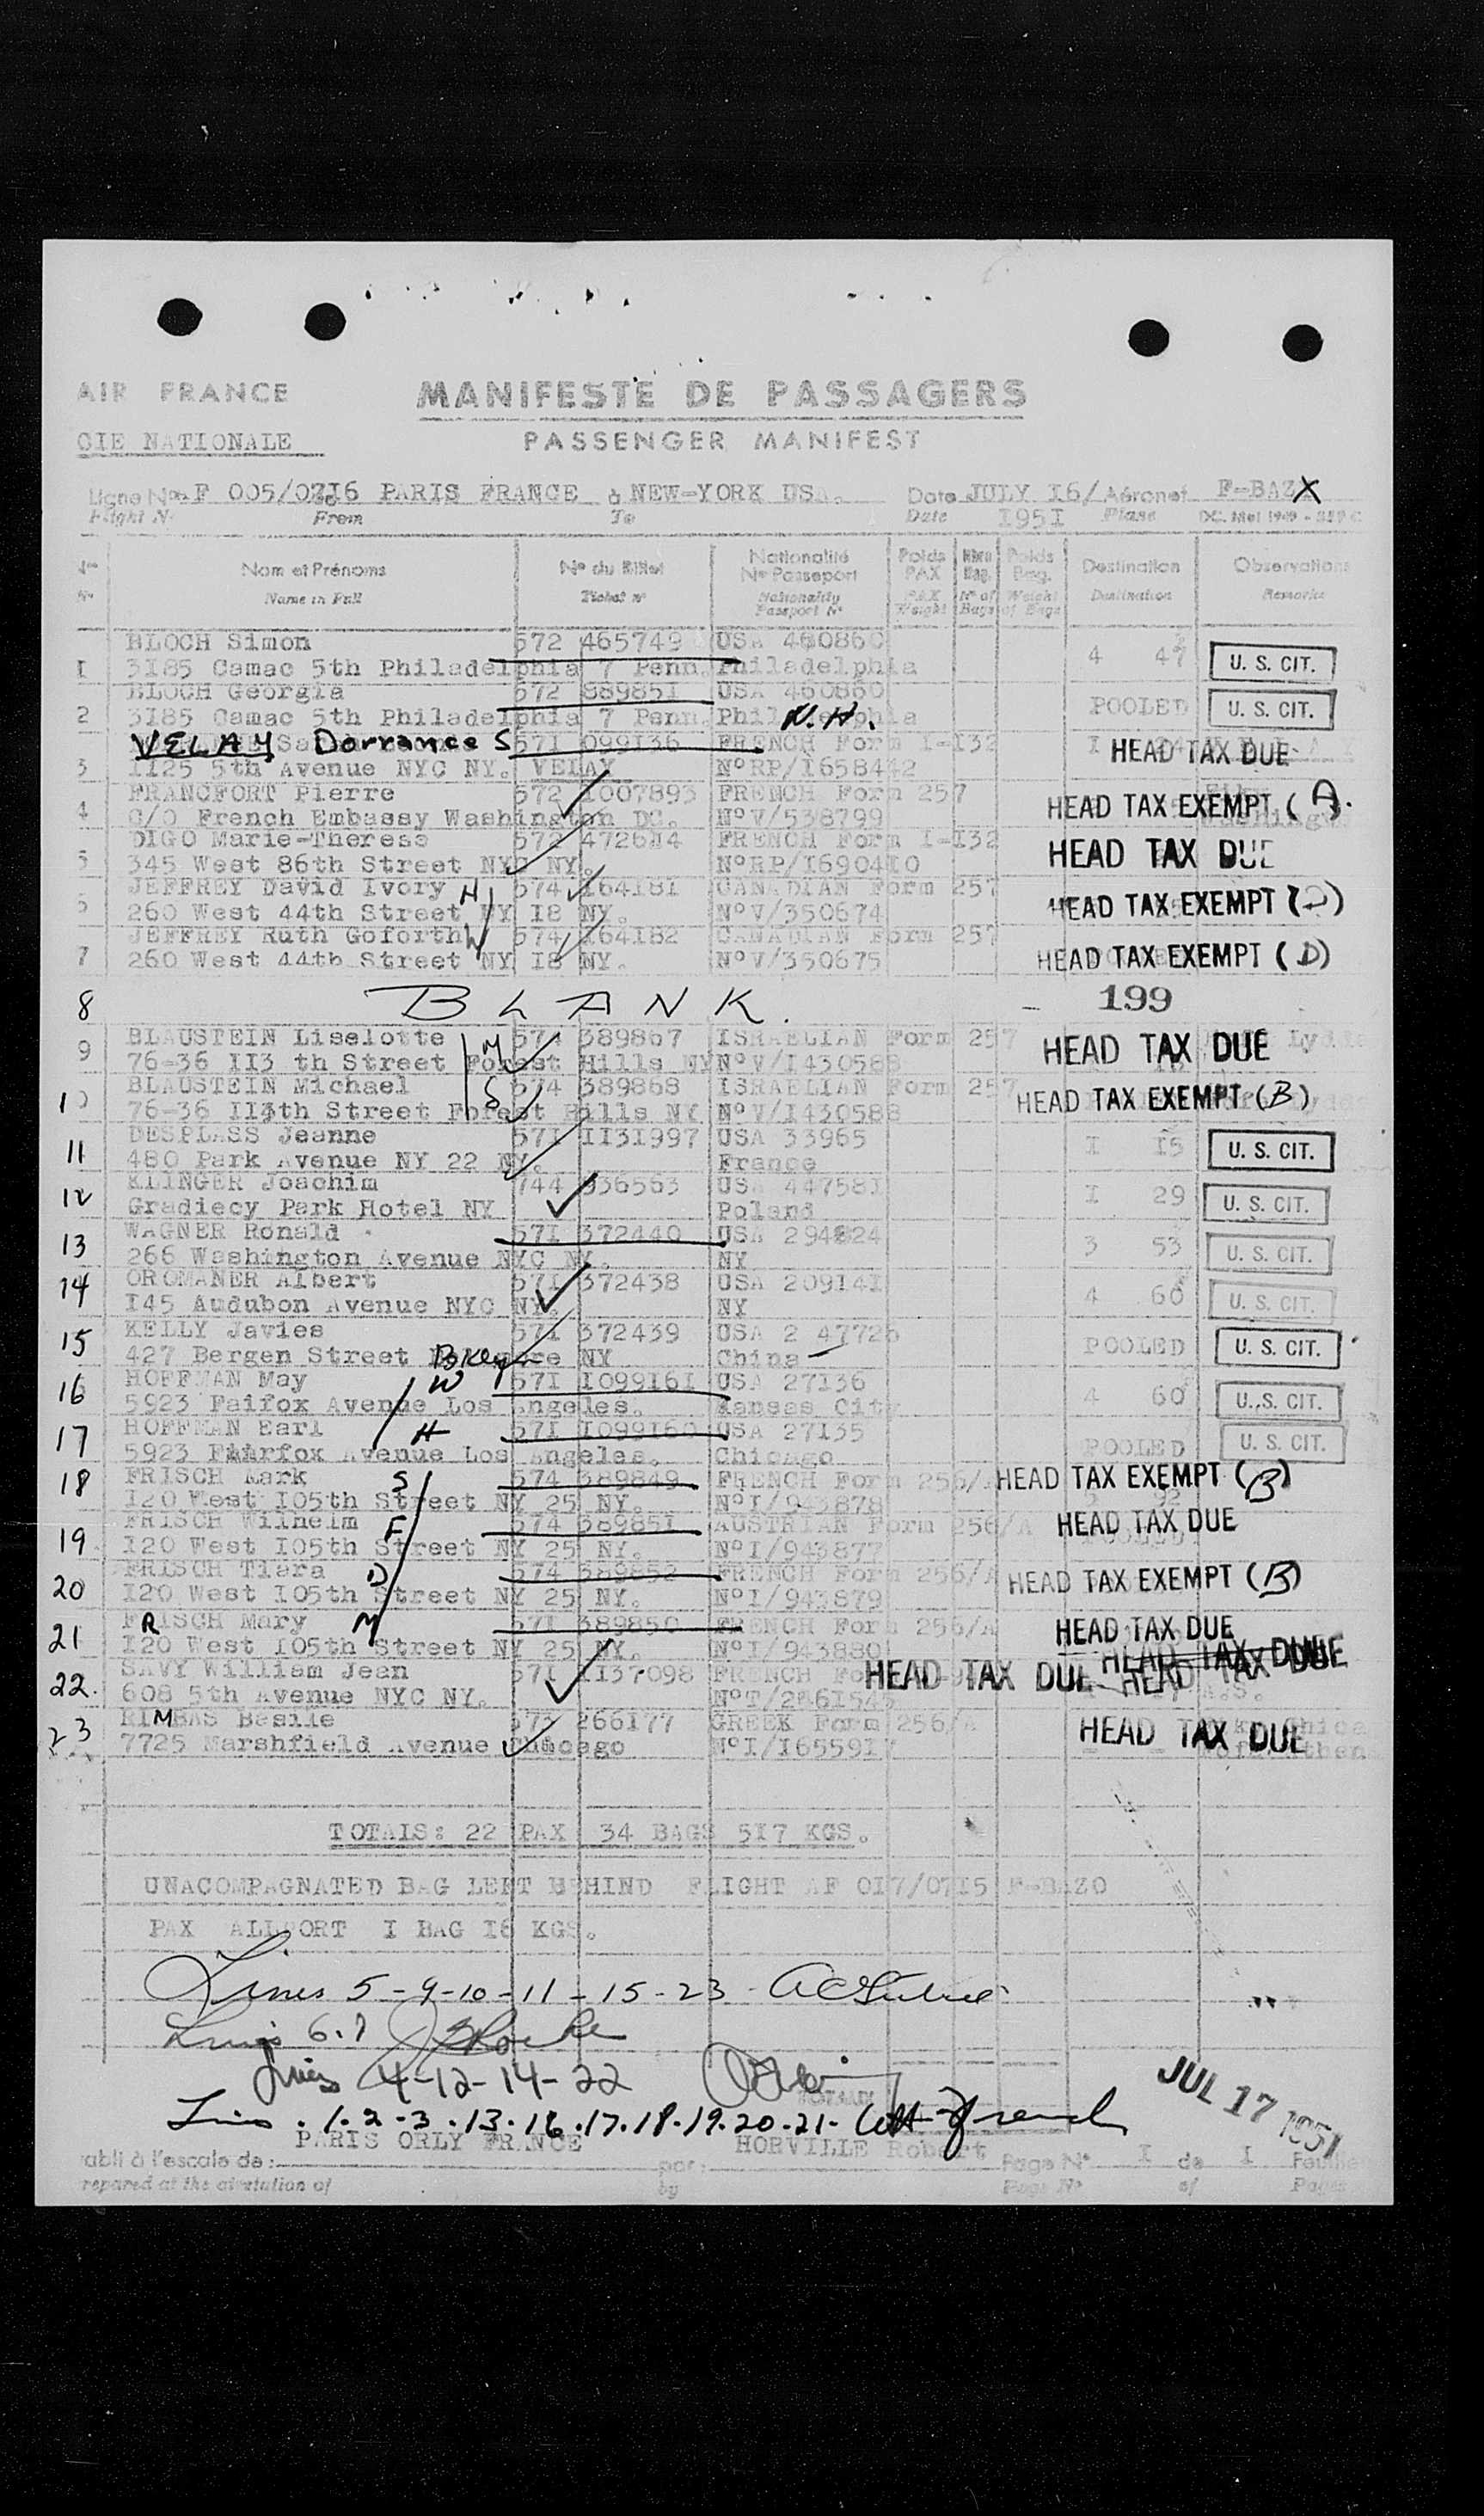 AIR FRANCE
MANIFESTE DE PASSAGERS
CIE NATIONALE
PASSENGER MANIFEST
Ligne No AF 005/0716 PARIS FRANCE à NEW-YORK USA. Date JULY I6/ Aéronef F-BAZX
Flight No From To Date I95I Plane
Nom et Prénoms No du Billet Nationalité Poids Nbre Poids Destination Observations
No Passeport PAX Bag. Bag.
Name in Full Ticket no Nationality PAX No of Weight Destination Remarks
Passport No Weight Bags of Bags
BLOCH Simon 572 465749 USA 460860
I 3I85 Camac 5th Philadelphia 7 Penn. Philadelphia 4 47 U. S. CIT.
BLOCH Georgia 572 889851 USA 460860
2 3I85 Camac 5th Philadelphia 7 Penn. Philadelphia N.H. POOLED U. S. CIT.
VELAY Dorrance S 57I 099I36 FRENCH Form I-I32 I HEAD TAX DUE
3 II25 5th Avenue NYC NY. VELAY NoRP/I658442
FRANCFORT Pierre 572 I007893 FRENCH Form 257 HEAD TAX EXEMPT (A.
4 C/O French Embassy Washington DC. NoV/538799
DIGO Marie-Therese 574 FRENCH Form I-I32 HEAD TAX DUE
5 345 West 86th Street NYC NY. NoRP/I690410
JEFFREY David Ivory H 574 I64I8I CANADIAN Form 257 HEAD TAX EXEMPT (D)
6 260 West 44th Street NY I8 NY. NoV/350674
JEFFREY Ruth Goforth W 574 I64I82 CANADIAN Form 257 HEAD TAX EXEMPT (D)
7 260 West 44th Street NY I8 NY. NoV/350675
8 BLANK. - 199
BLAUSTEIN Liselotte M 574 389867 ISRAELIAN Form 257 HEAD TAX DUE
9 76-36 II3 th Street Forest Hills NY NoV/I430588
BLAUSTEIN Michael S 574 389868 ISRAELIAN Form 257 HEAD TAX EXEMPT (B)
10 76-36 II3th Street Forest Hills NY NoV/I430588
DESPLASS Jeanne 57I II3I997 USA 33965
11 480 Park Avenue NY 22 NY. France I I5 U. S. CIT.
KLINGER Joachim 744 936563 USA 44758I
12 Gradiecy Park Hotel NY Poland I 29 U. S. CIT.
WAGNER Ronald 57I 372440 USA 294824
13 266 Washington Avenue NYC NY. NY 3 53 U. S. CIT.
OROMANER Albert 57I 372438 USA 209I4I
14 I45 Audubon Avenue NYC NY. NY 4 66 U. S. CIT.
KELLY Javies 57I 372439 USA 2 47726
15 427 Bergen Street Bklyn NY China POOLED U. S. CIT.
HOFFMAN May W 57I I099I6I USA 27I36
16 5923 Faifox Avenue Los Angeles. Kansas City 4 60 U. S. CIT.
HOFFMAN Earl H 57I I099I60 USA 27I35
17 5923 Fairfox Avenue Los Angeles. Chicago POOLED U. S. CIT.
FRISCH Mark S 574 389849 FRENCH Form 256/A HEAD TAX EXEMPT (B)
18 I20 West I05th Street NY 25 NY. NoI/943878
FRISCH Wilhelm F 574 38985I AUSTRIAN Form 256/A HEAD TAX DUE
19 I20 West I05th Street NY 25 NY. NoI/943877
FRISCH Tiara D 574 389852 FRENCH Form 256/A HEAD TAX EXEMPT (B)
20 I20 West I05th Street NY 25 NY. NoI/943879
FRISCH Mary M 57I 389850 FRENCH Form 256/A HEAD TAX DUE
21 I20 West I05th Street NY 25 NY. NoI/943880 HEAD TAX DUE
SAVY William Jean 57I II37098 FRENCH HEAD TAX DUE HEAD TAX DUE
22. 608 5th Avenue NYC NY.
RIMBAS Basile 266I77 GREEK Form 256/A HEAD TAX DUE
23 7725 Marshfield Avenue Chicago NoI/I6559I7
TOTALS: 22 PAX 34 BAGS 5I7 KGS.
UNACOMPAGNATED BAG LEFT BEHIND FLIGHT AF 0I7/07I5 F-BAZO
PAX ALLPORT I BAG I6 KGS.
Lines 5-9-10-11-15-23
Lines 6.7
Lines 4-12-14-22
JUL 17 1951
Lines . 1.2-3.13.16.17.18.19.20-21-
PARIS ORLY FRANCE HORVILLE Robert
abli à l'escale de: par: Page No I de I Feuilles
repared at the of by Page No of Pages